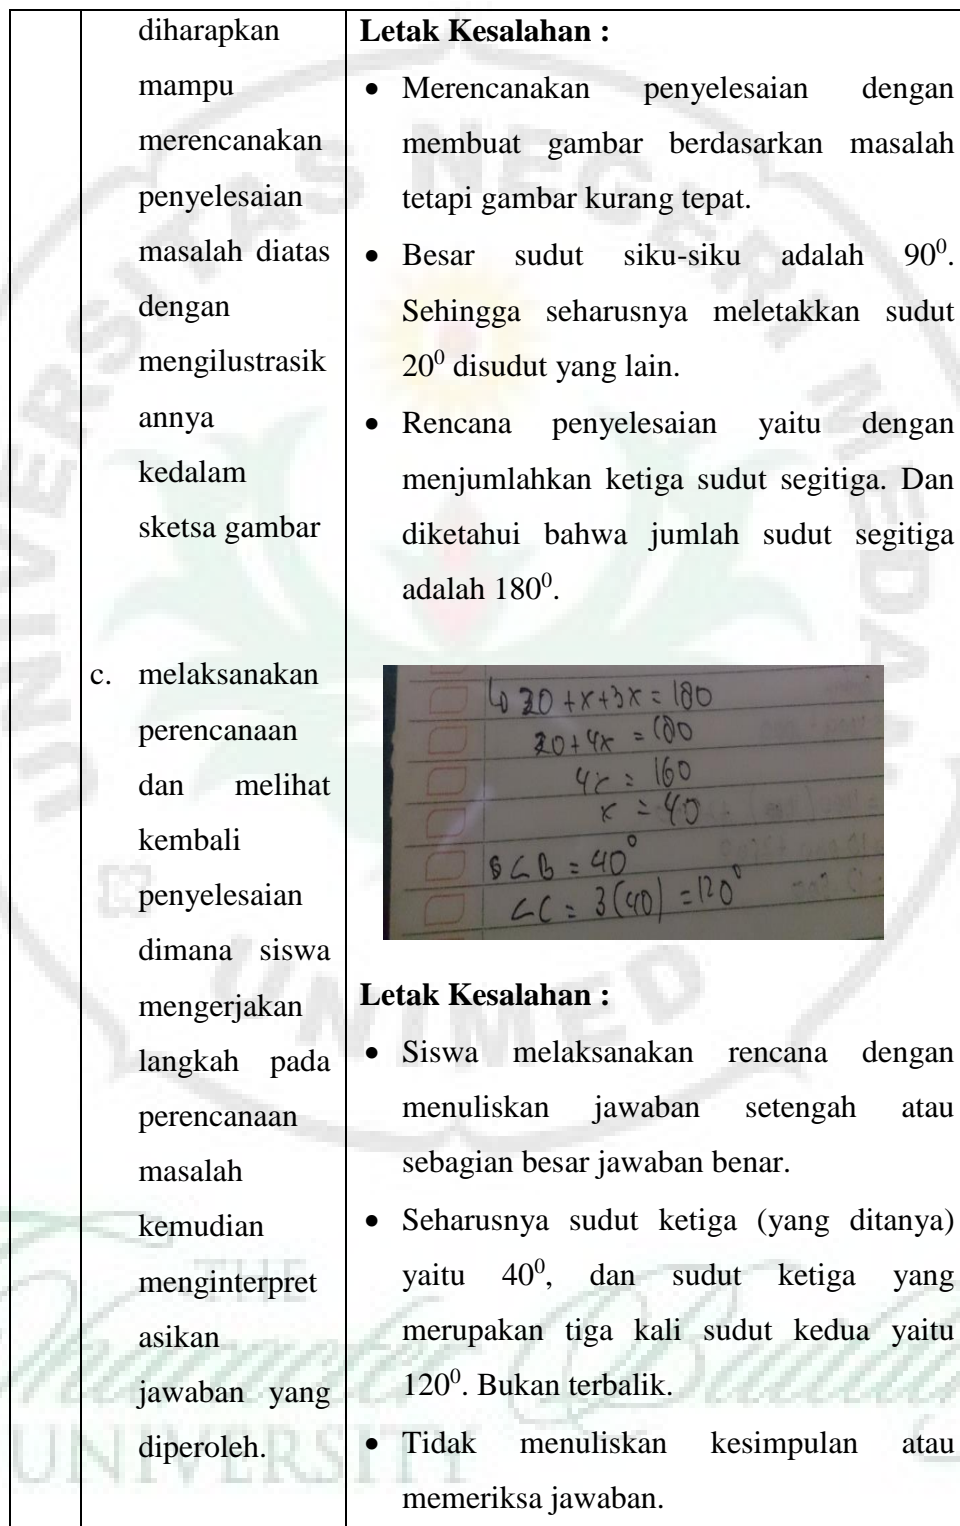 diharapkan
mampu
merencanakan
penyelesaian
masalah diatas
dengan
mengilustrasik
annya
kedalam
sketsa gambar
c. melaksanakan
perencanaan
dan melihat
kembali
penyelesaian
dimana siswa
mengerjakan
langkah pada
perencanaan
masalah
kemudian
menginterpret
asikan
jawaban yang
diperoleh.
Letak Kesalahan :
• Merencanakan penyelesaian dengan
membuat gambar berdasarkan masalah
tetapi gambar kurang tepat.
• Besar sudut siku-siku adalah 90⁰.
Sehingga seharusnya meletakkan sudut
20⁰ disudut yang lain.
• Rencana penyelesaian yaitu dengan
menjumlahkan ketiga sudut segitiga. Dan
diketahui bahwa jumlah sudut segitiga
adalah 180⁰.
20 + x + 3x = 180
20 + 4x = 180
4x = 160
x = 40
∠B = 40°
∠C = 3(40) = 120°
Letak Kesalahan :
• Siswa melaksanakan rencana dengan
menuliskan jawaban setengah atau
sebagian besar jawaban benar.
• Seharusnya sudut ketiga (yang ditanya)
yaitu 40⁰, dan sudut ketiga yang
merupakan tiga kali sudut kedua yaitu
120⁰. Bukan terbalik.
• Tidak menuliskan kesimpulan atau
memeriksa jawaban.
UNIVERSITAS NEGERI MEDAN
UNIMED
THE
UNIVERSITY